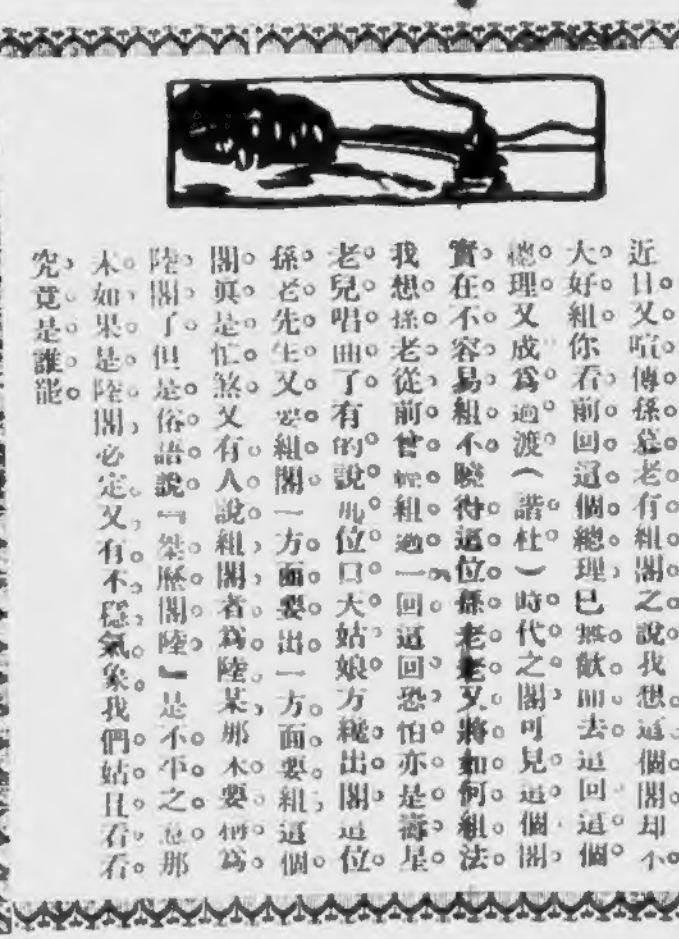 近日又喧傳孫慕老有組閣之說我想這個閣却不
大好組你看前回這個總理已無歡而去這回這個
總理又成爲過渡（諧杜）時代之閣可見這個閣
實在不容易組不曉得這位孫老老又將如何組法
我想孫老從前曾經組過一回這回恐怕亦是壽星
老兒唱曲了有的說那位口大姑娘方纔出閣這位
孫老先生又要組閣一方面要出一方面要組這個
閣眞是忙煞又有人說組閣者爲陸某那末要稱爲
陸閣了但是俗語說『桀歷閣陸』是不平之意那
末如果是陸閣必定又有不穩氣象我們姑且看看
究竟是誰能